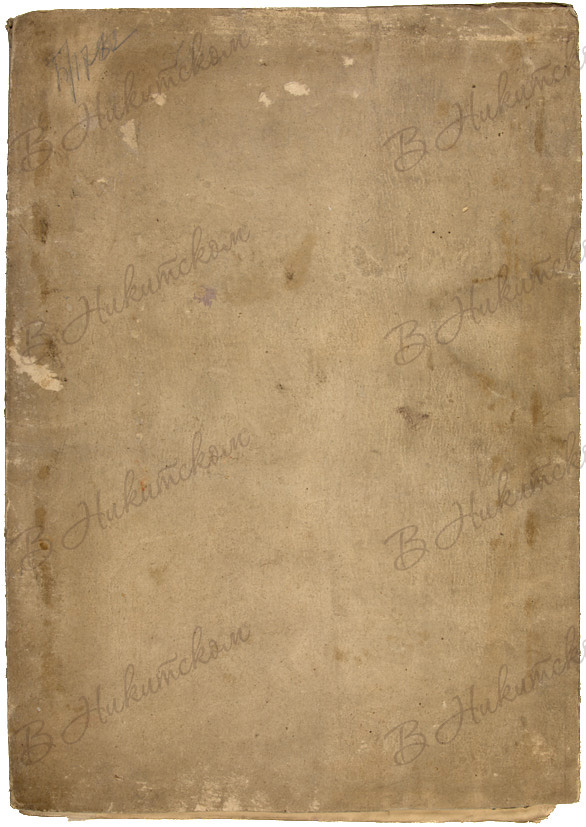 В Никитском
В Никитском
В Никитском
В Никитском
В Никитском
В Никитском
В Никитском
В Никитском